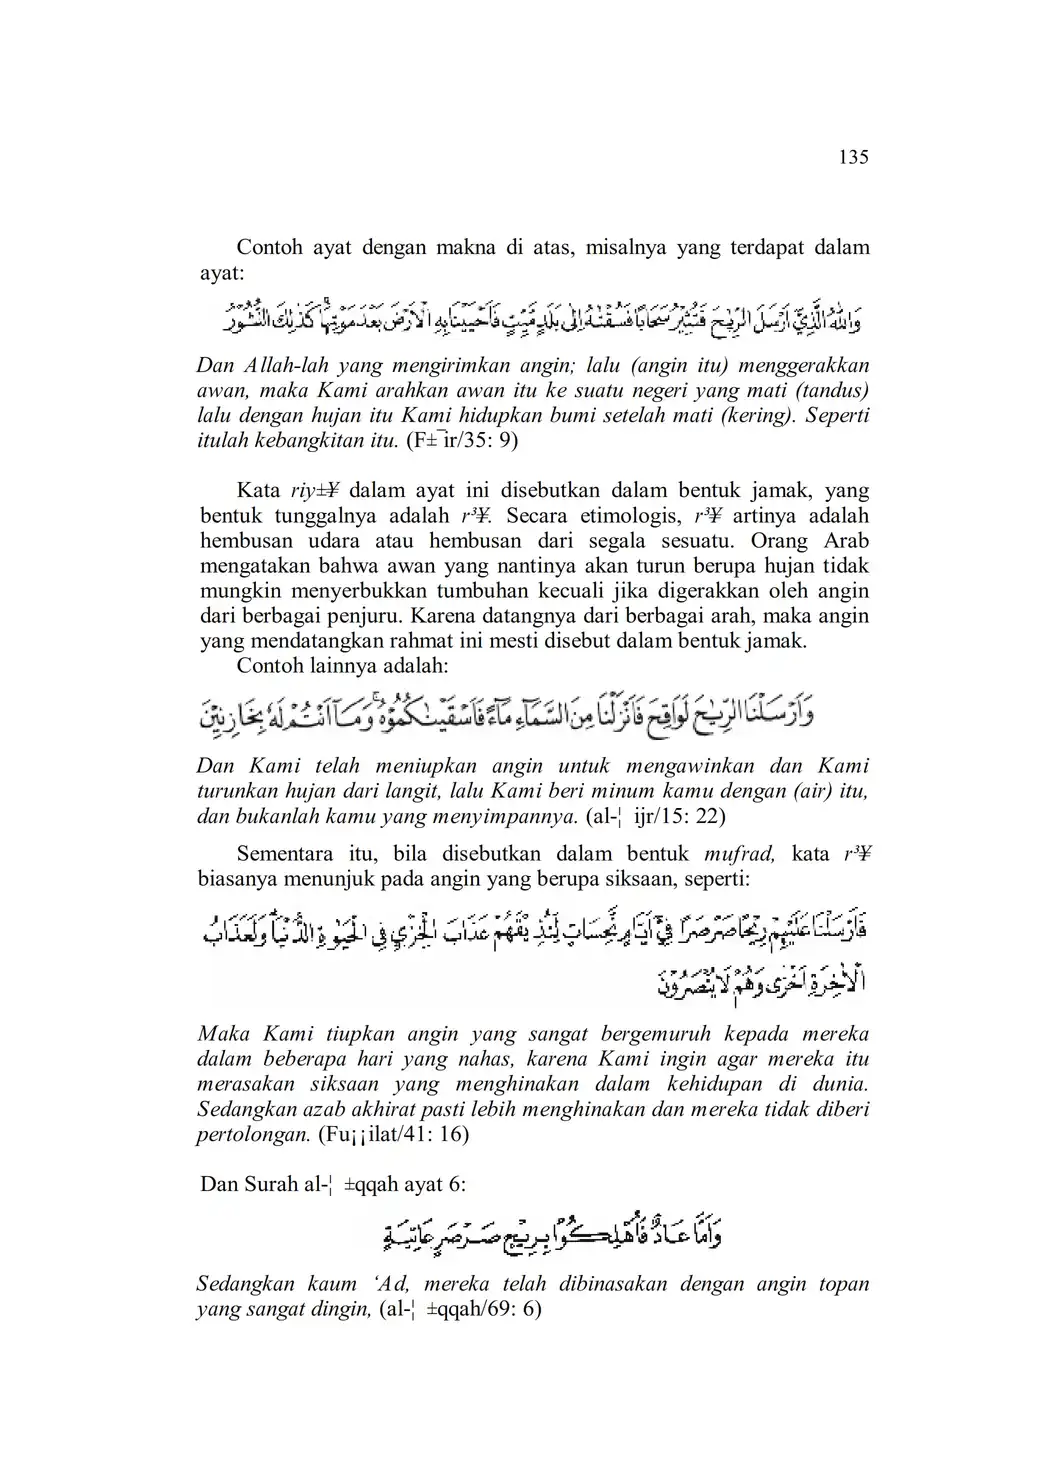 135
Contoh ayat dengan makna di atas, misalnya yang terdapat dalam
ayat:
وَاللّٰهُ الَّذِيْٓ اَرْسَلَ الرِّيٰحَ فَتُثِيْرُ سَحَابًا فَسُقْنٰهُ اِلٰى بَلَدٍ مَّيِّتٍ فَاَحْيَيْنَا بِهِ الْاَرْضَ بَعْدَ مَوْتِهَاۗ كَذٰلِكَ النُّشُوْرُ
Dan Allah-lah yang mengirimkan angin; lalu (angin itu) menggerakkan
awan, maka Kami arahkan awan itu ke suatu negeri yang mati (tandus)
lalu dengan hujan itu Kami hidupkan bumi setelah mati (kering). Seperti
itulah kebangkitan itu. (F±¯ir/35: 9)
Kata riy±¥ dalam ayat ini disebutkan dalam bentuk jamak, yang
bentuk tunggalnya adalah r³¥. Secara etimologis, r³¥ artinya adalah
hembusan udara atau hembusan dari segala sesuatu. Orang Arab
mengatakan bahwa awan yang nantinya akan turun berupa hujan tidak
mungkin menyerbukkan tumbuhan kecuali jika digerakkan oleh angin
dari berbagai penjuru. Karena datangnya dari berbagai arah, maka angin
yang mendatangkan rahmat ini mesti disebut dalam bentuk jamak.
Contoh lainnya adalah:
وَاَرْسَلْنَا الرِّيٰحَ لَوَاقِحَ فَاَنْزَلْنَا مِنَ السَّمَاۤءِ مَاۤءً فَاَسْقَيْنٰكُمُوْهُۚ وَمَآ اَنْتُمْ لَهٗ بِخَازِنِيْنَ
Dan Kami telah meniupkan angin untuk mengawinkan dan Kami
turunkan hujan dari langit, lalu Kami beri minum kamu dengan (air) itu,
dan bukanlah kamu yang menyimpannya. (al-¦ ijr/15: 22)
Sementara itu, bila disebutkan dalam bentuk mufrad, kata r³¥
biasanya menunjuk pada angin yang berupa siksaan, seperti:
فَاَرْسَلْنَا عَلَيْهِمْ رِيْحًا صَرْصَرًا فِيْٓ اَيَّامٍ نَّحِسَاتٍ لِّنُذِيْقَهُمْ عَذَابَ الْخِزْيِ فِى الْحَيٰوةِ الدُّنْيَاۗ وَلَعَذَابُ
الْاٰخِرَةِ اَخْزٰى وَهُمْ لَا يُنْصَرُوْنَ
Maka Kami tiupkan angin yang sangat bergemuruh kepada mereka
dalam beberapa hari yang nahas, karena Kami ingin agar mereka itu
merasakan siksaan yang menghinakan dalam kehidupan di dunia.
Sedangkan azab akhirat pasti lebih menghinakan dan mereka tidak diberi
pertolongan. (Fu¡¡ilat/41: 16)
Dan Surah al-¦ ±qqah ayat 6:
وَاَمَّا عَادٌ فَاُهْلِكُوْا بِرِيْحٍ صَرْصَرٍ عَاتِيَةٍ
Sedangkan kaum ‘Ad, mereka telah dibinasakan dengan angin topan
yang sangat dingin, (al-¦ ±qqah/69: 6)